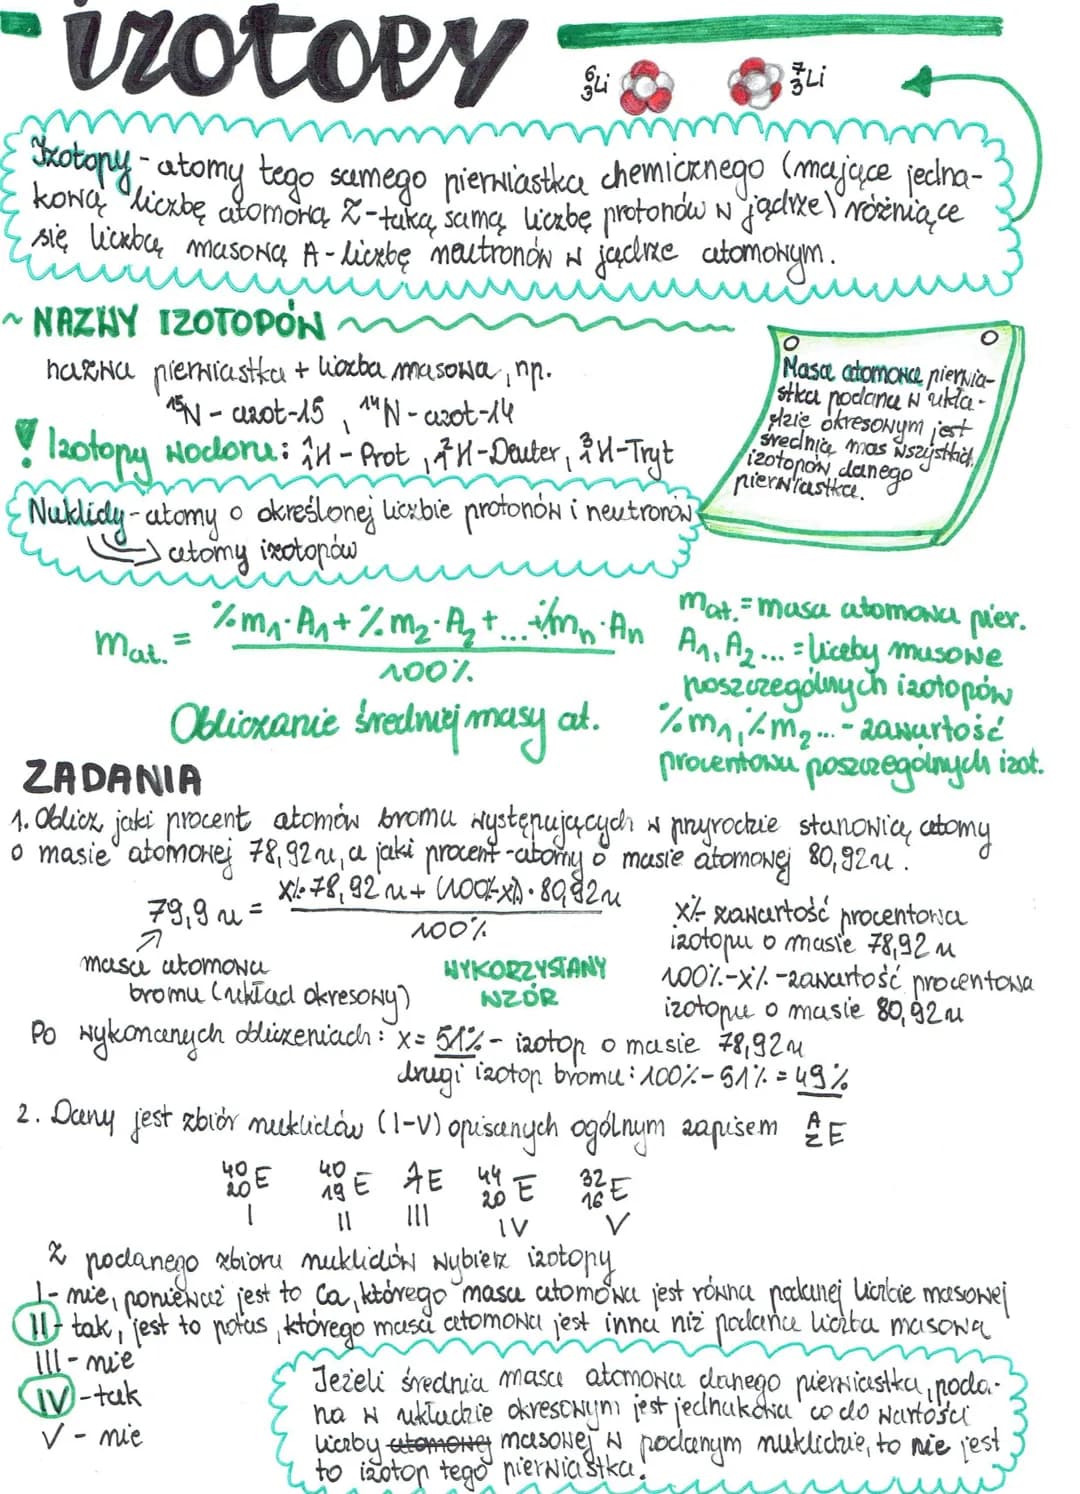 izotopy
⁶₃Li ⁷₃Li
Izotopy - atomy tego samego pierwiastka chemicznego (mające jedna-
kową liczbę atomową Z - taką samą liczbę protonów w jądrze) różniące
się liczbą masową A - liczbę neutronów w jądrze atomowym.
~ NAZWY IZOTOPÓW
nazwa pierwiastka + liczba masowa, np.
¹⁵N - azot-15, ¹⁴N - azot-14
! Izotopy wodoru: ¹₁H - Prot, ²₁H - Deuter, ³₁H - Tryt
Masa atomowa pierwia-
stka podana w ukła-
dzie okresowym jest
średnią mas wszystkich
izotopów danego
pierwiastka.
Nuklidy - atomy o określonej liczbie protonów i neutronów
atomy izotopów
m at. = %m₁·A₁ + %m₂·A₂ + ... + %mₙ·Aₙ
100%
Obliczanie średniej masy at.
m at. = masa atomowa pier.
A₁, A₂ ... = liczby masowe
poszczególnych izotopów
%m₁, %m₂ ... - zawartość
procentowa poszczególnych izot.
ZADANIA
1. Oblicz jaki procent atomów bromu występujących w przyrodzie stanowią atomy
o masie atomowej 78,92u, a jaki procent - atomy o masie atomowej 80,92u.
79,9 u = x%·78,92 u + (100%-x%)·80,92u
100%
masa atomowa
bromu (układ okresowy)
WYKORZYSTANY
WZÓR
x% - zawartość procentowa
izotopu o masie 78,92 u
100%-x% - zawartość procentowa
izotopu o masie 80,92u
Po wykonanych obliczeniach: x = 51% - izotop o masie 78,92u
drugi izotop bromu: 100% - 51% = 49%
2. Dany jest zbiór nuklidów (I-V) opisanych ogólnym zapisem ᴬ_Z E
⁴⁰₂₀E ⁴⁰₁₉E E ⁴⁴₂₀E ³²₁₆E
I II III IV V
Z podanego zbioru nuklidów wybierz izotopy
I - nie, ponieważ jest to Ca, którego masa atomowa jest równa podanej liczbie masowej
II - tak, jest to potas, którego masa atomowa jest inna niż podana liczba masowa
III - nie
IV - tak
V - nie
Jeżeli średnia masa atomowa danego pierwiastka, poda-
na w układzie okresowym jest jednakowa co do wartości
liczby atomowej masowej w podanym nuklidzie, to nie jest
to izotop tego pierwiastka.